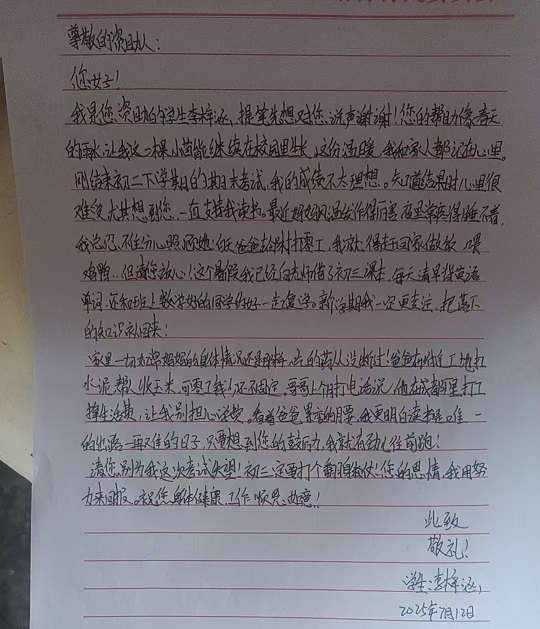 尊敬的资助人：
您好！
我是您资助的学生李梓涵，提笔先想对您说声谢谢！您的帮助像春天
的雨水，让我这一棵小苗能继续在校园里生长，这份温暖，我和家人都记在心里。
刚结束初二下学期的期末考试，我的成绩不太理想。知道结果时心里很
难受，尤其想到您一直支持我读书。最近妈妈风湿发作得厉害，夜里常疼得睡不着，
我总忍不住分心照顾她；白天爸爸去打零工，我就得赶回家做饭、喂
鸡鸭…但请您放心！这个暑假我已经向老师借了初三课本，每天清早背英语
单词，还和班上数学好的同学约好一起复习。新学期我一定更专注，把落下
的知识补回来！
家里一切如常，妈妈的身体情况还是那样，吃的药从没断过！爸爸在附近工地扛
水泥、帮人收玉米，可零工我！还不固定。哥哥上个月打电话说，他在成都那里打工
挣生活费，让我别担心学费。看着爸爸累弯的腰，我更明白读书是唯一
的出路—再难的日子，只要想到您的鼓励，我就有劲儿往前跑！
请您别为我这次考试失望！初三一定要打个翻身仗！您的恩情，我用努
力来回报。祝您身体健康，工作顺意、如意！
此致
敬礼！
学生：李梓涵
2025年7月12日